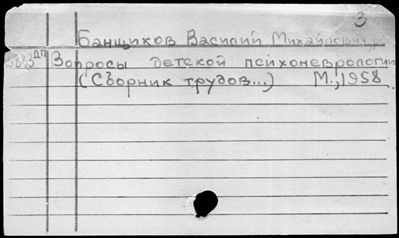 3
Банщиков Василий Михайлович,
Вопросы детской психоневрологии
(Сборник трудов...) М., 1958